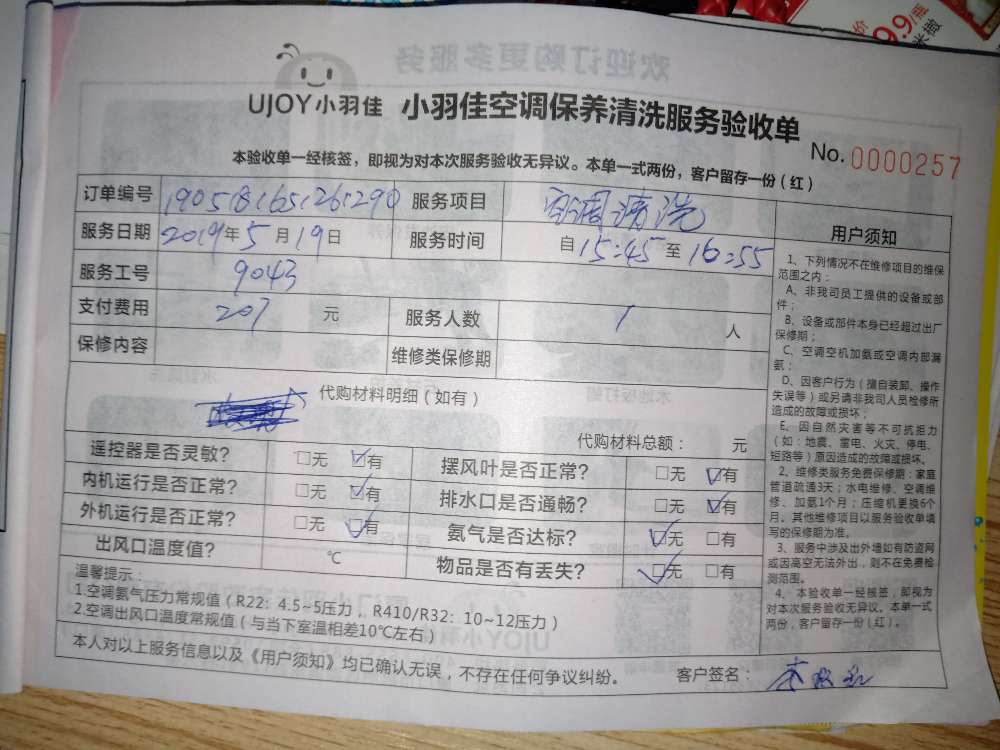 9.9/瓶
UJOY小羽佳 小羽佳空调保养清洗服务验收单
No. 0000257
本验收单一经核签，即视为对本次服务验收无异议。本单一式两份，客户留存一份（红）
订单编号 190518165126290 服务项目 空调清洗
服务日期 2019年5月19日 服务时间 自15:45至16:55
服务工号 9043
支付费用 207 元 服务人数 1 人
保修内容 维修类保修期
代购材料明细（如有）
代购材料总额： 元
遥控器是否灵敏？ □无 ☑有 摆风叶是否正常？ □无 ☑有
内机运行是否正常？ □无 ☑有 排水口是否通畅？ □无 ☑有
外机运行是否正常？ □无 ☑有 氨气是否达标？ ☑无 □有
出风口温度值？ ℃ 物品是否有丢失？ ☑无 □有
温馨提示：
1.空调氨气压力常规值（R22：4.5~5压力．R410/R32：10~12压力）
2.空调出风口温度常规值（与当下室温相差10℃左右）
本人对以上服务信息以及《用户须知》均已确认无误，不存在任何争议纠纷。 客户签名：
用户须知
1、下列情况不在维修项目的维保
范围之内：
A、非我司员工提供的设备或部
件；
B、设备或部件本身已经超过出厂
保修期；
C、空调空机加氨或空调内部漏
氨；
D、因客户行为（擅自装卸、操作
失误等）或另请非我司人员检修所
造成的故障或损坏；
E、因自然灾害等不可抗拒力
（如：地震、雷电、火灾、停电、
短路等）原因造成的故障或损坏。
2、维修类服务免费保修期：家庭
管道疏通3天；水电维修、空调维
修、加氨1个月；压缩机更换6个
月。其他维修项目以服务验收单填
写的保修期为准。
3、服务中涉及出外墙如有防盗网
或因高空无法外出，则不在免费检
测范围。
4、本验收单一经核签，即视为
对本次服务验收无异议。本单一式
两份，客户留存一份（红）。